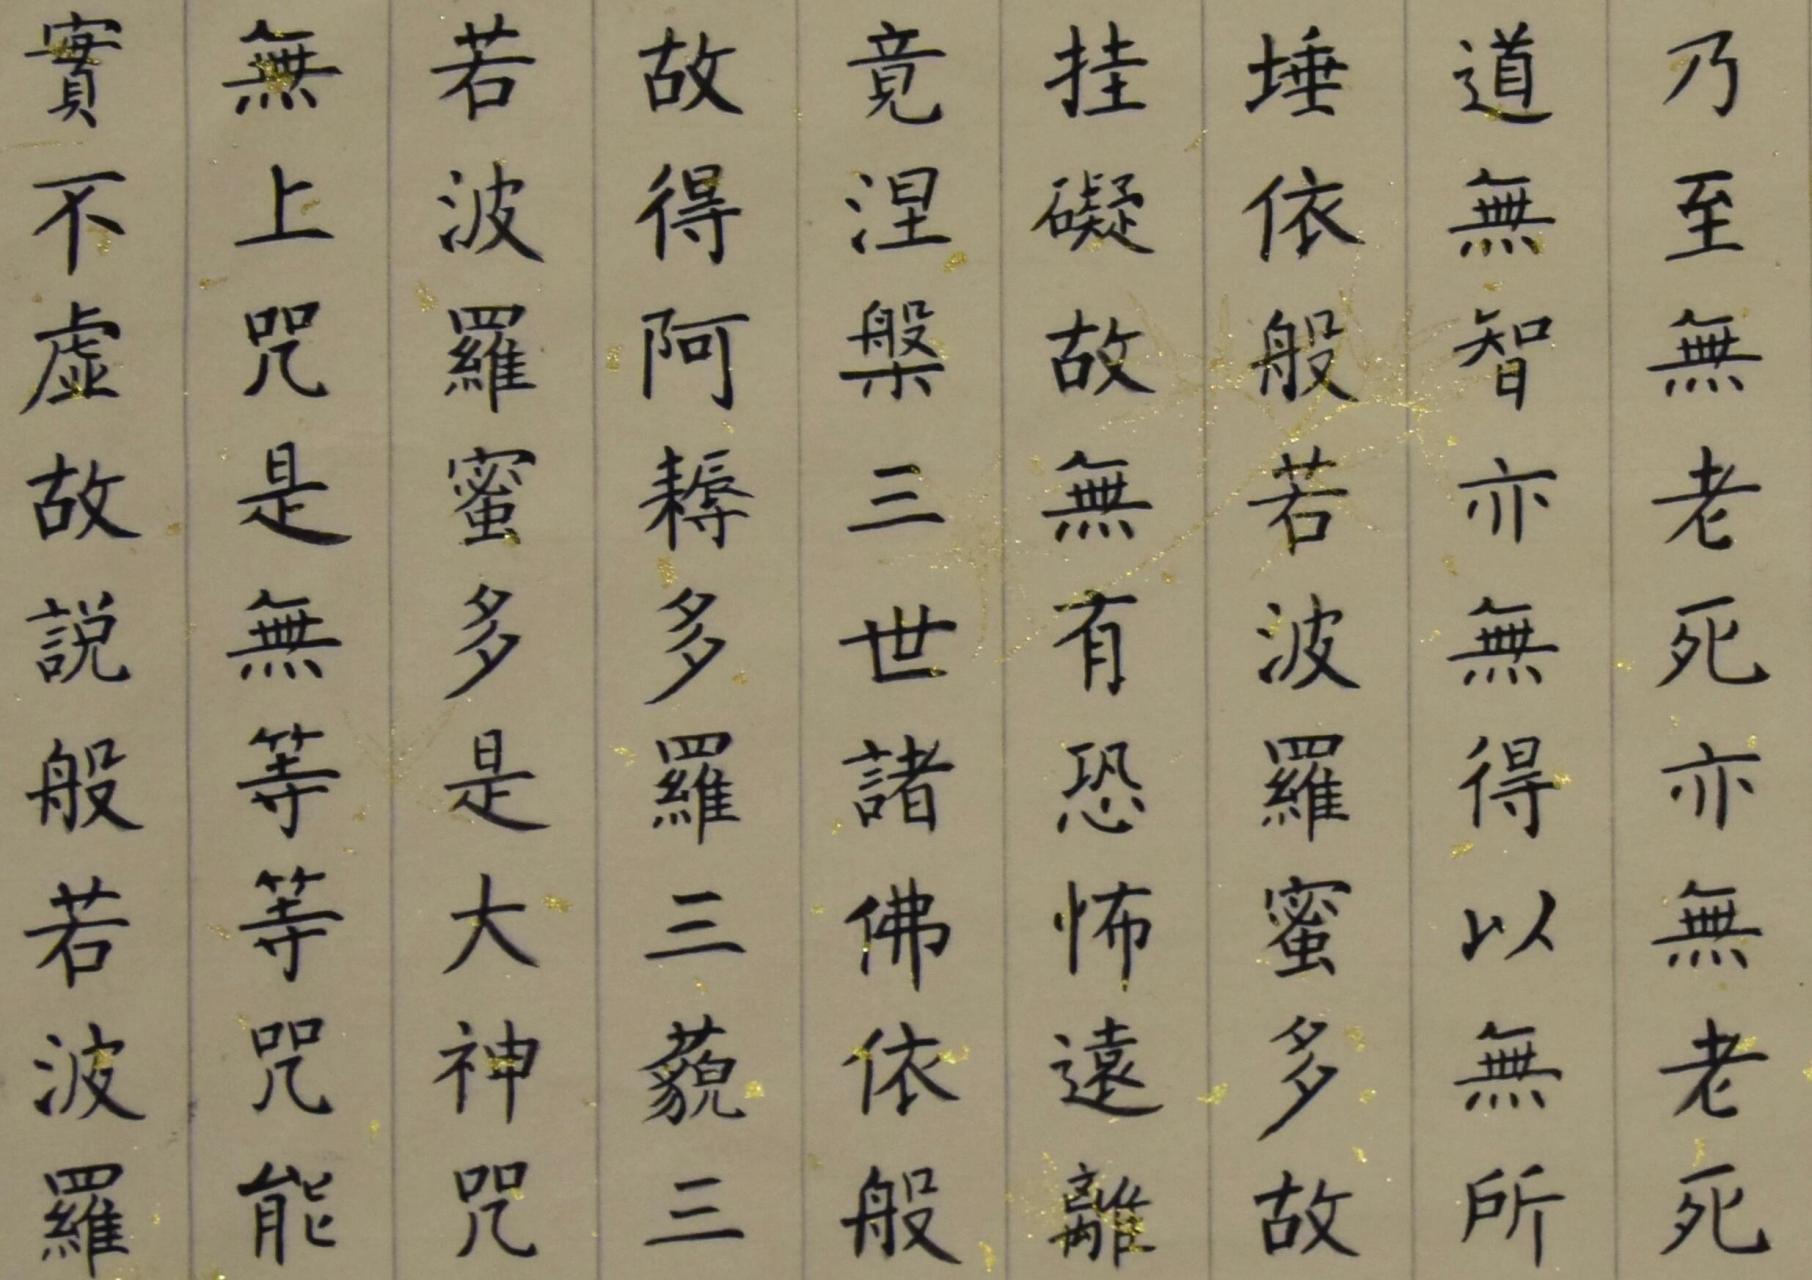 乃至無老死亦無老死
道無智亦無得以無所
埵依般若波羅蜜多故
挂礙故無有恐怖遠離
竟涅槃三世諸佛依般
故得阿耨多羅三藐三
若波羅蜜多是大神咒
無上咒是無等等咒能
實不虛故説般若波羅